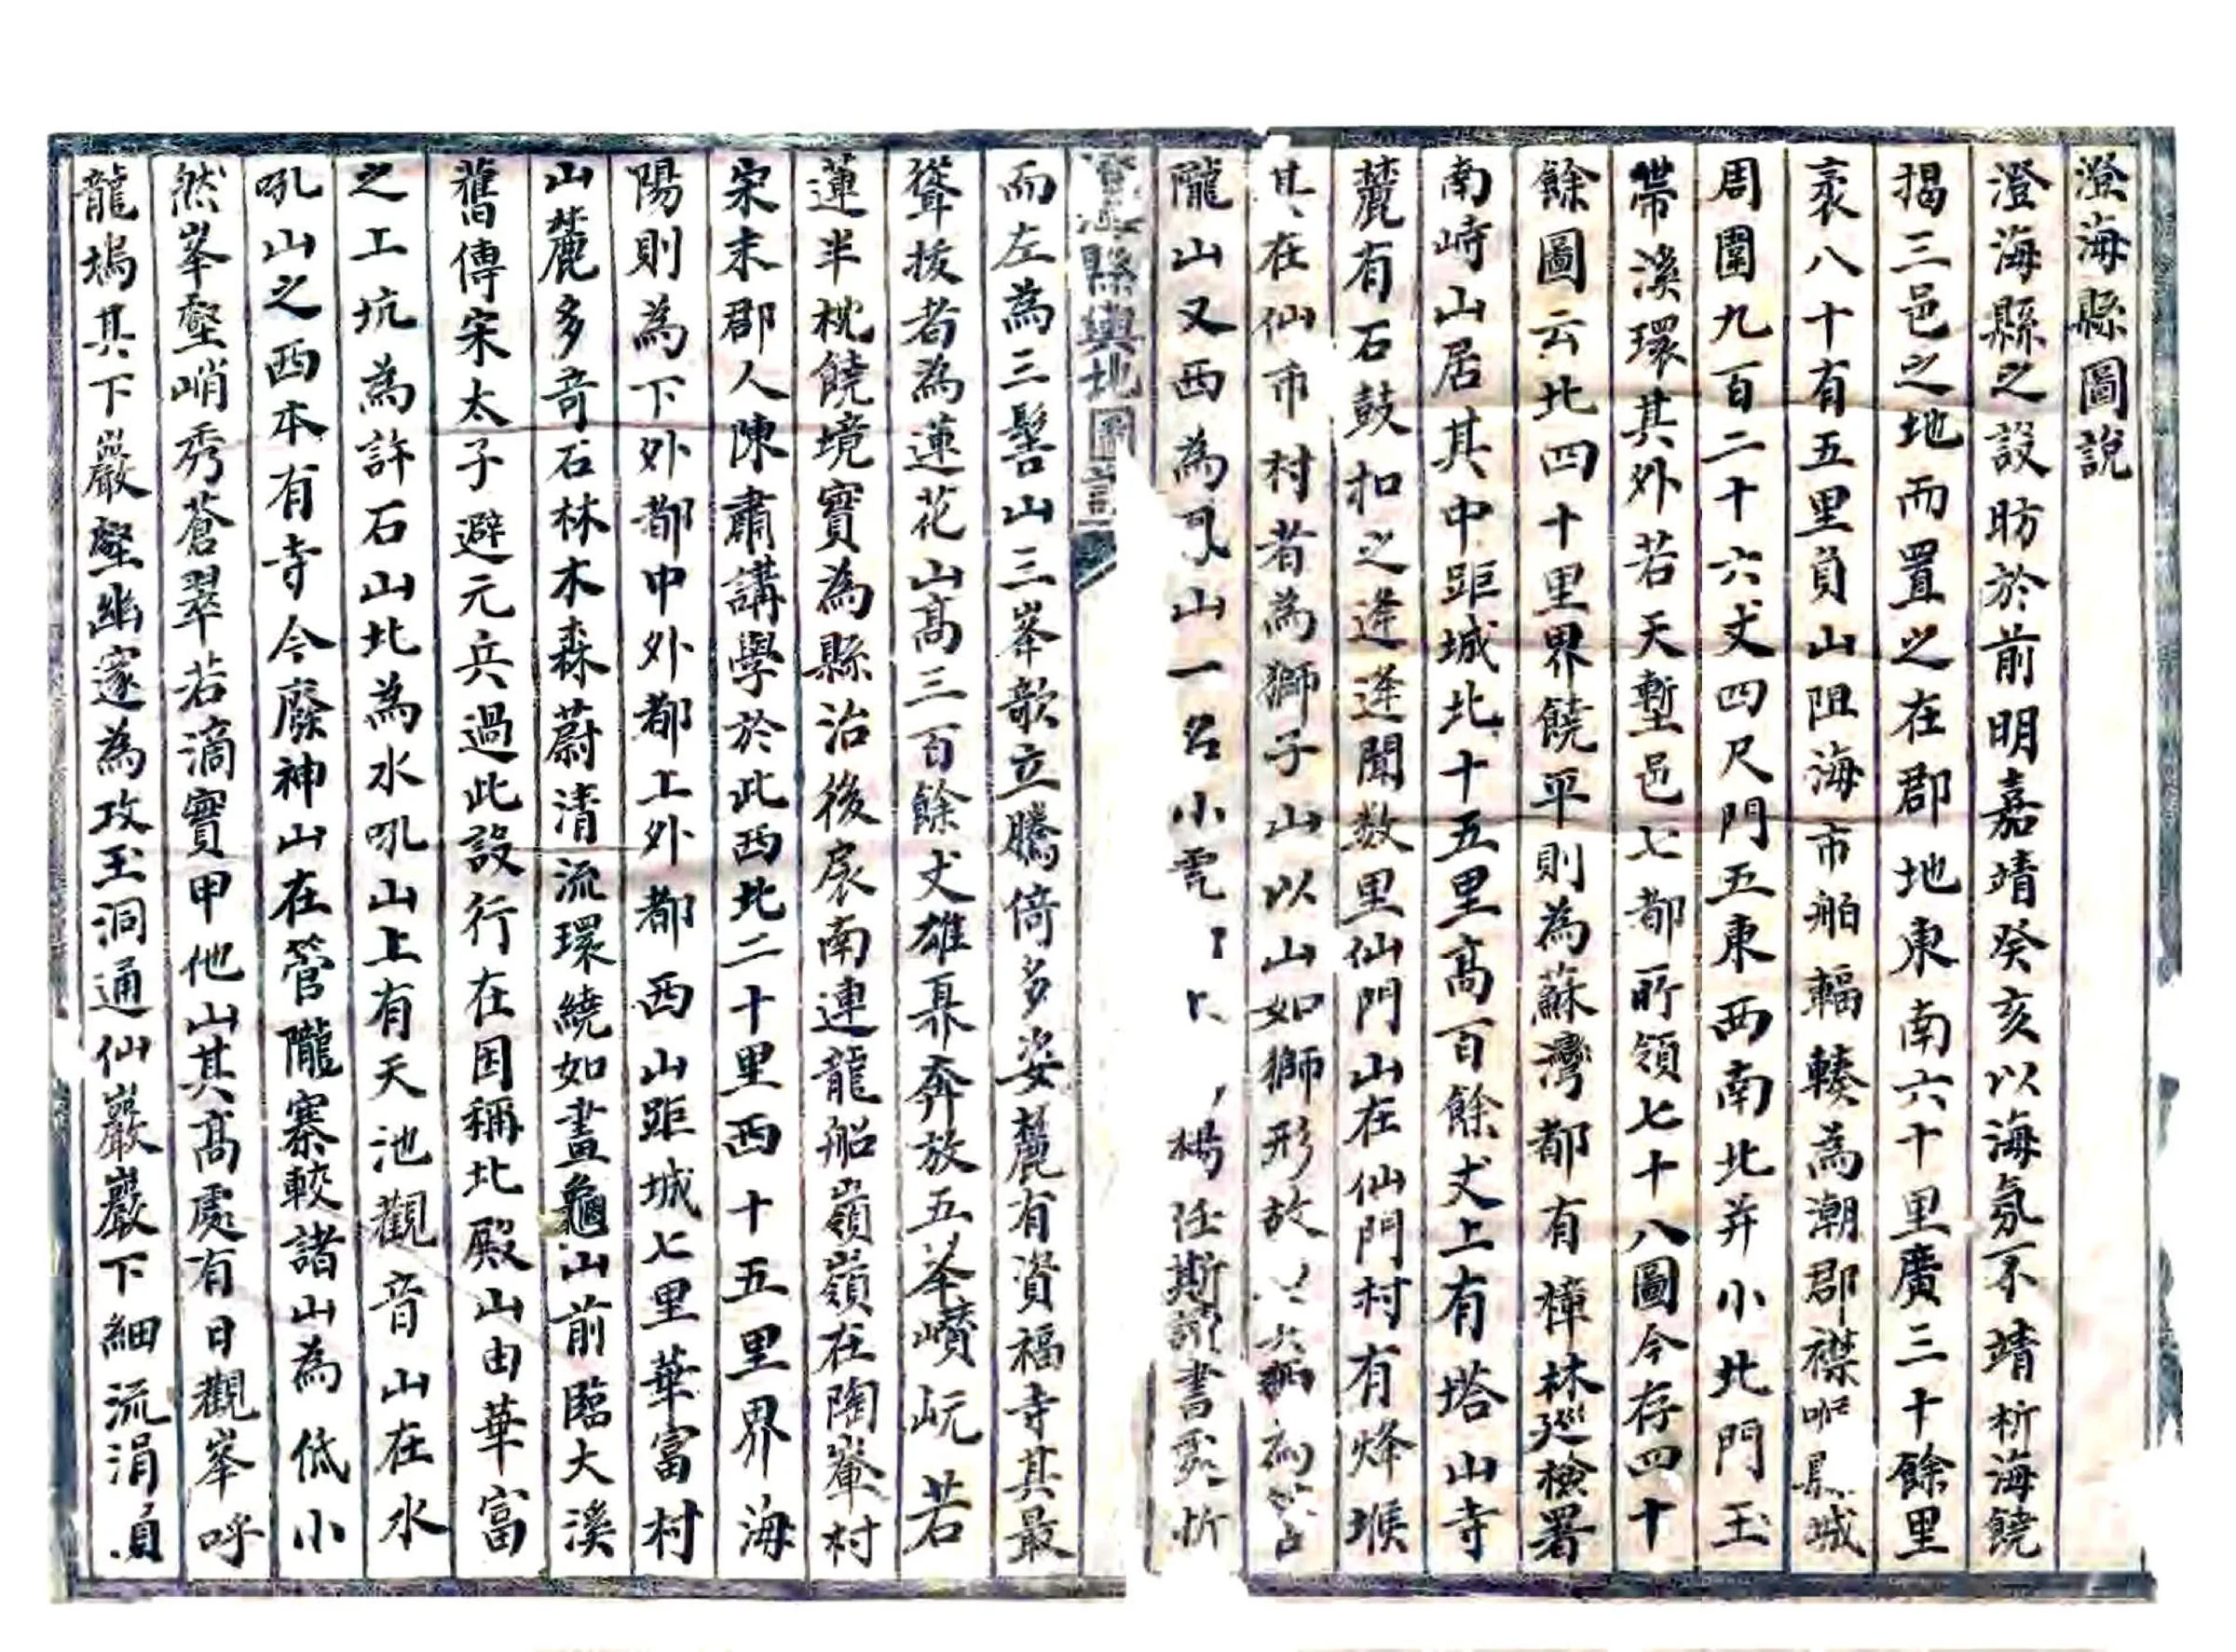 澄海縣圖說
澄海縣之設昉於前明嘉靖癸亥以海氛不靖析海饒
揭三邑之地而置之在郡地東南六十里廣三十餘里
袤八十有五里負山阻海市舶輻輳為潮郡襟城
周圍九百二十六丈四尺門五東西南北并小北門玉
帶溪環其外若天塹邑七都所領七十八圖今存四十
餘圖云北四十里界饒平則為蘇灣都有樟林巡檢署
南峙山居其中距城北十五里高百餘丈上有塔山寺
麓有石鼓扣之逢逢聞数里仙門山在仙門村有烽堠
其在仙市村者為獅子山以山如獅形故
隴山又西為山一名小楊任斯書忻
澄海縣輿地圖說
而左為三髻山三峯欹立騰倚多姿麓有資福寺其最
聳拔者為蓮花山高三百餘丈雄昪奔放五峯巑岏若
蓮半枕饒境實為縣治後扆南連龍船嶺嶺在陶輋村
宋末郡人陳肅講學於此西北二十里西十五里界海
陽則為下外都中外都上外都西山距城七里華富村
山麓多竒石林木森蔚清流環繞如畫龜山前臨大溪
舊傳宋太子避元兵過此設行在因稱北殿山由華富
之工坑為許石山北為水吼山上有天池觀音山在水
吼山之西本有寺今廢神山在管隴寨較諸山為低小
然峯壑峭秀蒼翠若滴實甲他山其高處有日觀峯呼
龍塢其下巖壑幽邃為攻玉洞通仙巖巖下細流涓涓